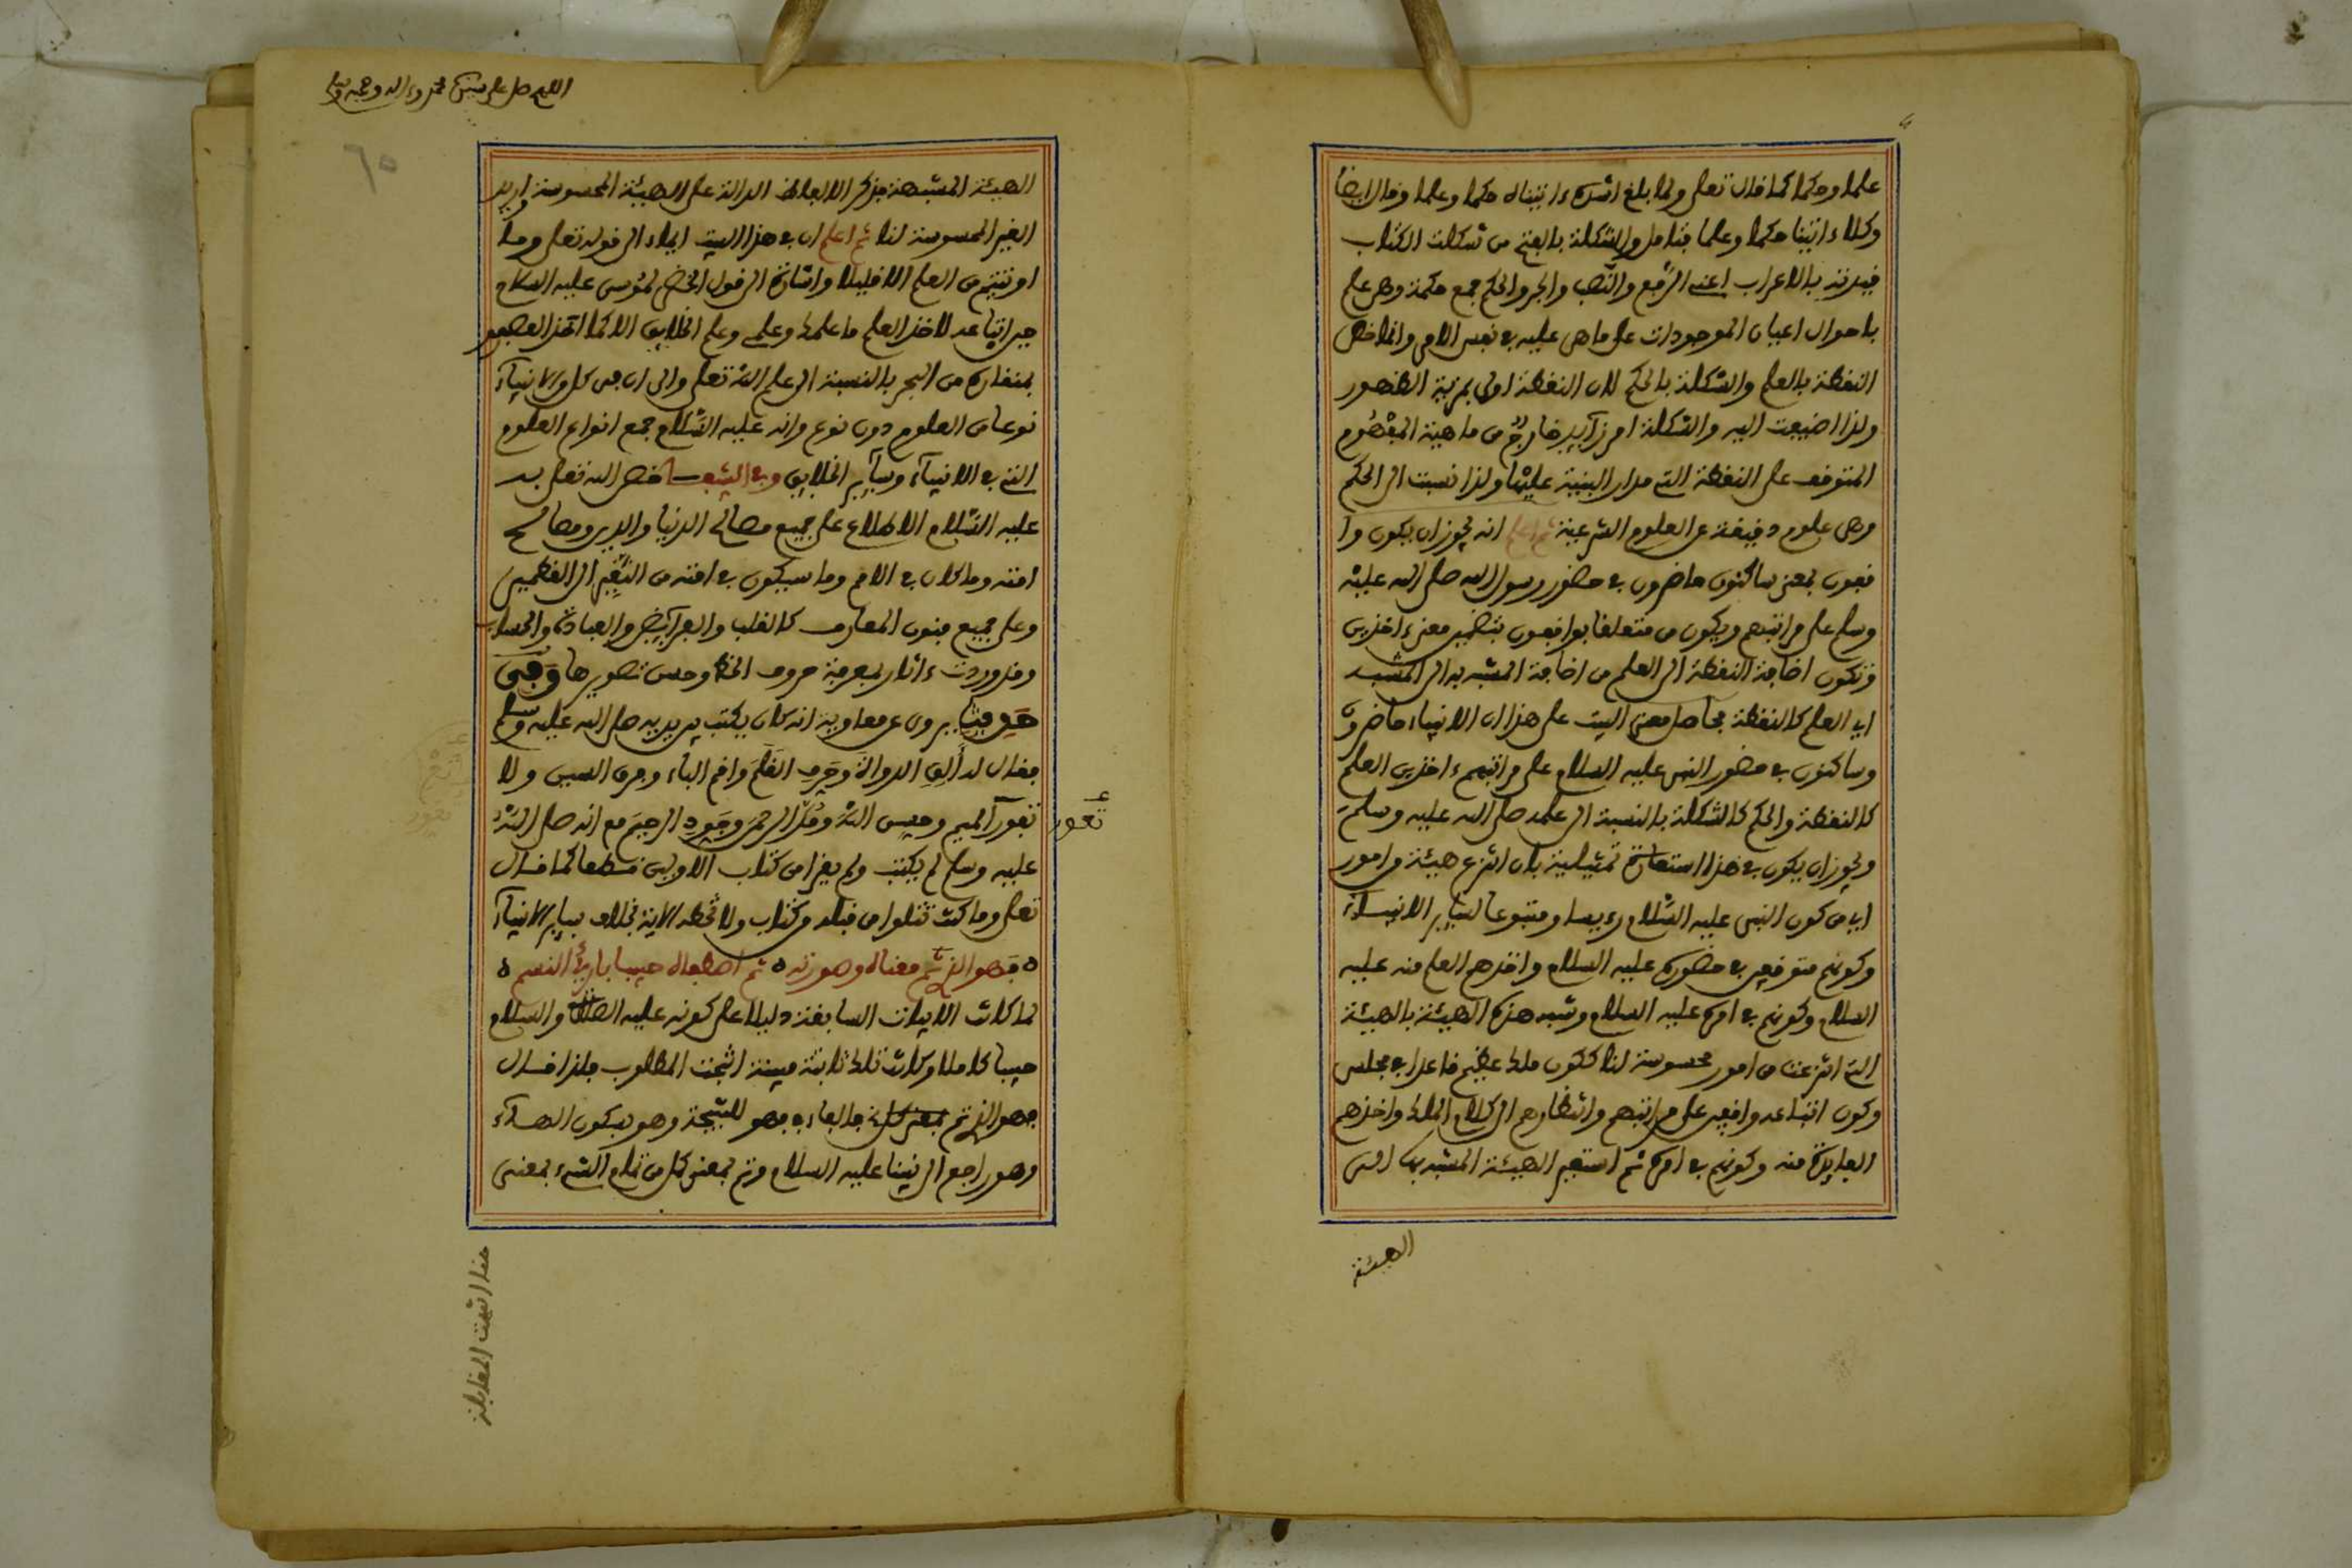 علما وحكما كما قال تعلى ولما بلغ اشده ءاتيناه حكما وعلما وقال ايضا
وكلا ءاتينا حكما وعلما فتامل والشكلة بالفتح من شكلت الكتاب
قيدته بالاعراب اعنى الرفع والنصب والجر والحكم جمع حكمة وهى علم
باحوال اعيان الموجودات على ماهى عليه فى نفس الامر وانما خص
النقطة بالعلم والشكلة بالحكم لان النقطة اولى بمزية الظهور
ولذا اضيفت اليه والشكلة امر زآيد خارج من ماهية المفهوم
المتوقف على النقطة التى مدار البنية عليها ولذا نسبت الى الحكم
وهى علوم دقيقة عن العلوم الشرعية ثم اعلم انه يجوز ان يكون وا
قفون بمعنى ساكنون حاضرون فى حضور رسول الله صلى الله عليه
وسلم على مراتبهم ويكون من متعلقا بواقفون بتضمين معنى ءاخذين
وتكون اضافة النقطة الى العلم من اضافة المشبه به الى المشبه
اى العلم كالنقطة فحاصل معنى البيت على هذا ان الانبياء حاضرون
وساكنون فى حضور النبى عليه السلام على مراتبهم ءاخذين العلم
كالنقطة والحكم كالشكلة بالنسبة الى علمه صلى الله عليه وسلم
ويجوز ان يكون فى هذا استعارة تمثيلية بان انتزع هيئة من امور
اى من كون النبى عليه السلام رءيسا ومتبوعا لسآير الانبيآء
وكونهم متوقفين فى حضوره عليه السلام واخذهم العلم منه عليه
السلام وكونهم فى امره عليه السلام وشبه هذه الهيئة بالهيئة
التى انتزعت من امور محسوسة لنا ككون ملك عظيم قاعدا فى مجلس
وكون اتباعه واقفين على مراتبهم وانتظارهم الى كلام الملك واخذهم
الفايدة منه وكونهم فى امره ثم استعير الهيئة المشبه بها التى
الهيئة
اللهم صل على سيدنا محمد وءاله وصحبه وسلم
٦٥
الهيئة المشبهة بذكر الالفاظ الدالة على الهيئة المحسوسة واريد
الغير المحسوسة لنا ثم اعلم ان فى هذا البيت ايماء الى قوله تعلى وما
اوتيتم من العلم الا قليلا واشارة الى قول الخضر لموسى عليه السلام
حين اتباعه لاخذ العلم ما علمك وعلمى وعلم الخلايق الا كما اخذ العصفور
بمنقاره من البحر بالنسبة الى علم الله تعلى والى ان فى كل من الانبيآء
نوعا من العلوم دون نوع وانه عليه السلام جمع انواع العلوم
التى فى الانبيآء وسآير الخلايق وفى الشفا خص الله تعلى به
عليه السلام الاطلاع على جميع مصالح الدنيا والدين ومصالح
امته وما كان فى الامم وما سيكون فى امته من النقير الى القطمير
وعلى جميع فنون المعارف كالقلب والفرآيض والعبادة والحساب
وقد وردت ءاثار بمعرفة حروف الخط وحسن تصويرها وفى
حديث يروى عن معاوية انه كان يكتب بين يديه صلى الله عليه وسلم
فقال له ألق الدواة وحرف القلم واقم الباء وفرق السين ولا
تعور الميم وحسن الله ومد الرحمن وجود الرحيم مع انه صلى الله
عليه وسلم لم يكتب ولم يقرا من كتاب الاولين قطعا كما قال
تعلى وما كنت تتلوا من قبله من كتاب ولا تخطه الاية بخلاف سآير الانبيآء
ه فهو الذى تم معناه وصورته ه ثم اصطفاه حبيبا بارئ النسم ه
لما كانت الابيات السابقة دليلا على كونه عليه الصلاة والسلام
حبيبا كاملا وكانت تلك ثابتة مبينة انتجت المطلوب فلذا قال
فهو الذى تم بمعنى كل فالفاء فى فهو للنتيجة وهو بسكون الهآء
وهو راجع الى نبينا عليه السلام وتم بمعنى كمل من تمام الشىء بمعنى
تعور
هنا انتهت المقابلة